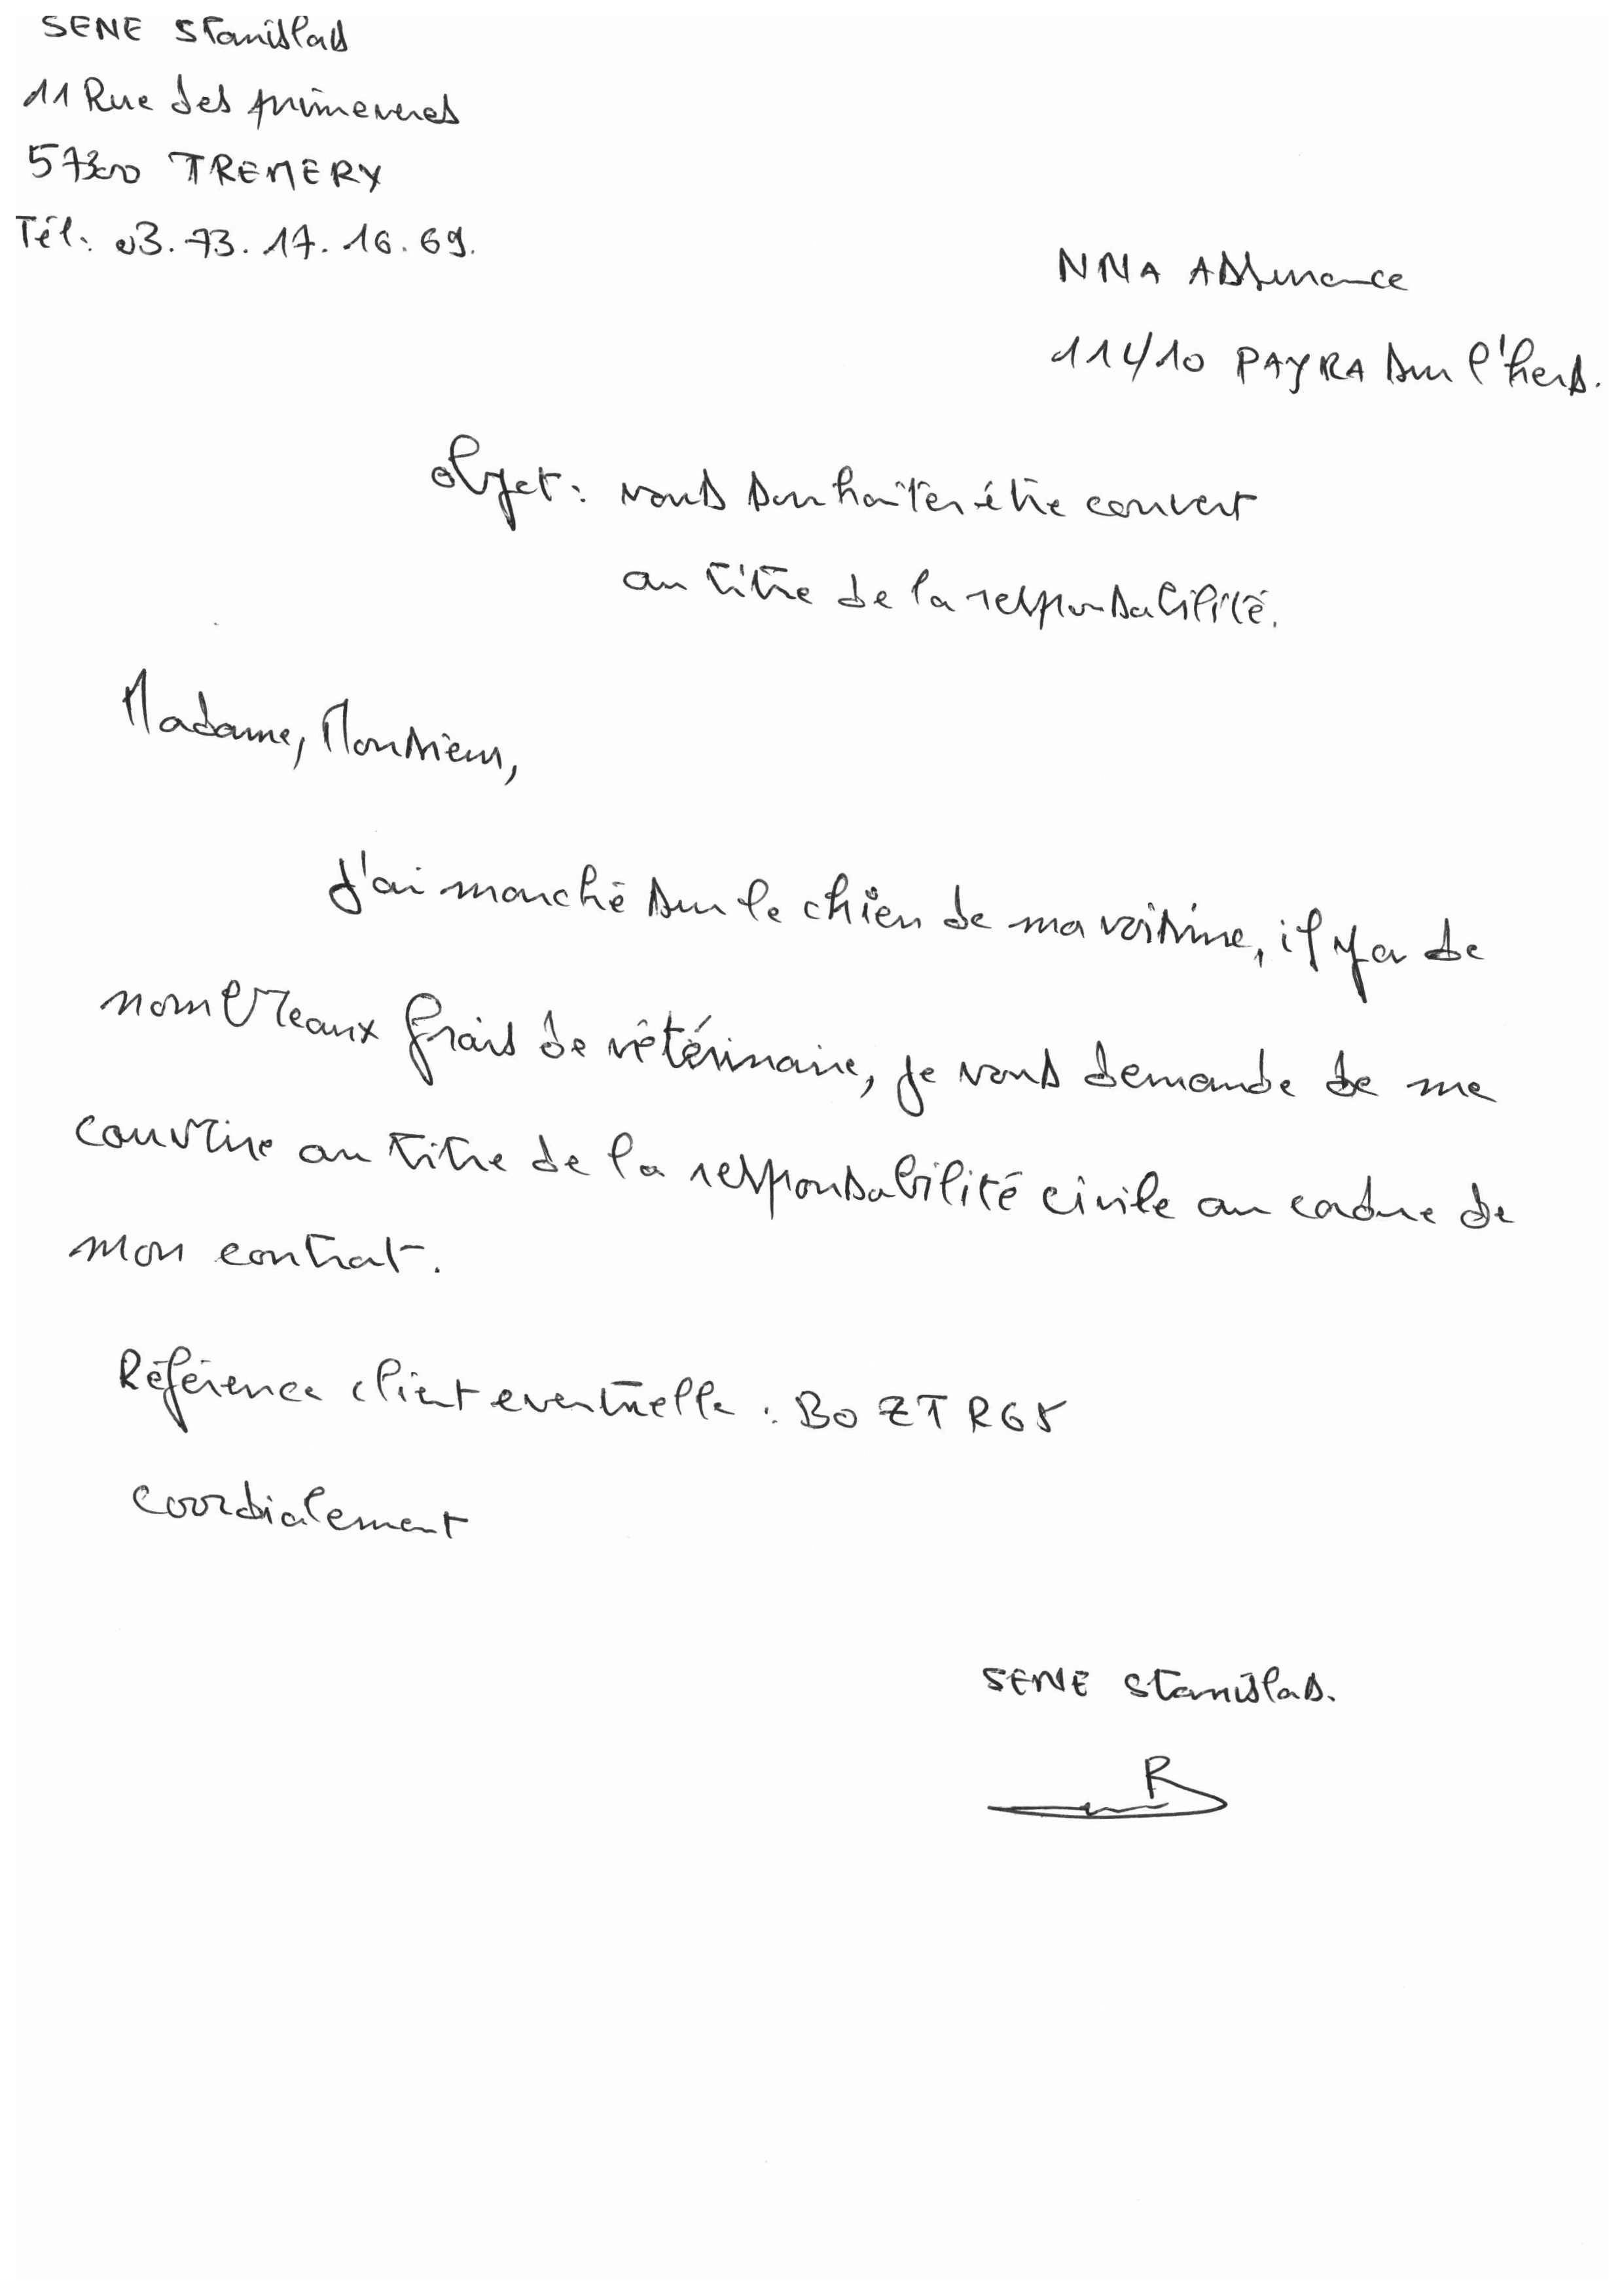 SENE Stanislas
11 Rue des primeveres
57300 TREMERY
Tél: 03.73.17.16.69.
NNA Assurance
11410 PAYRA sur l'hers.
objet: vous souhaiter être couvert
au titre de la responsabilité.
Madame, Monsieur,
J'ai marché sur le chien de ma voisine, il y a de
nombreaux frais de vétérinaire, je vous demande de me
couvrire au titre de la responsabilité civile au cadre de
mon contrat.
Référence client eventuelle : BOZTRG5
Coordialement
SENE Stanislas.